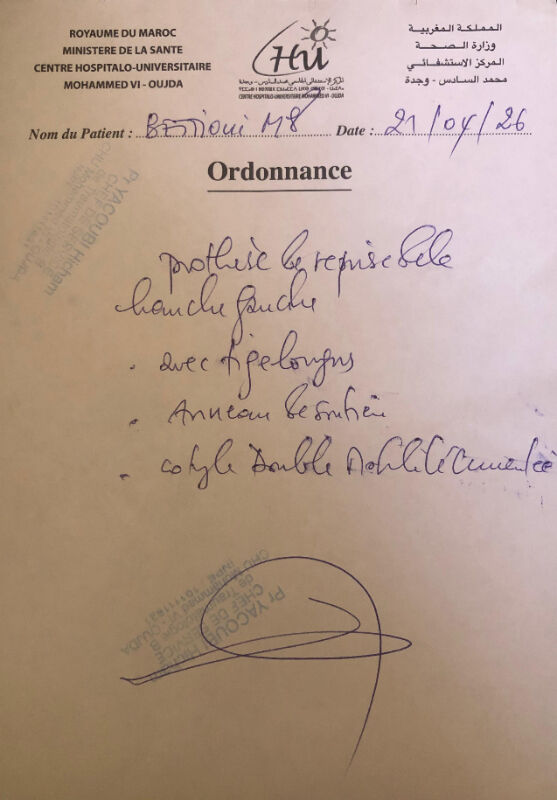 ROYAUME DU MAROC
MINISTERE DE LA SANTE
CENTRE HOSPITALO-UNIVERSITAIRE
MOHAMMED VI - OUJDA
CHU
المركز الاستشفائي الجامعي محمد السادس - وجدة
CENTRE HOSPITALO-UNIVERSITAIRE MOHAMMED VI - OUJDA
المملكة المغربية
وزارة الصحة
المركز الاستشفائي
محمد السادس - وجدة
Nom du Patient : Date : 21/04/26
Ordonnance
Pr YACOUBI Hicham
CHEF DE SERVICE
prothèse de reprise de la
hanche gauche
. avec tige longue
. Anneau de soutien
. cotyle Double Mobilité cimentée
Pr YACOUBI Hicham
CHEF DE SERVICE
de Traumatologie B
CHU Mohammed VI OUJDA